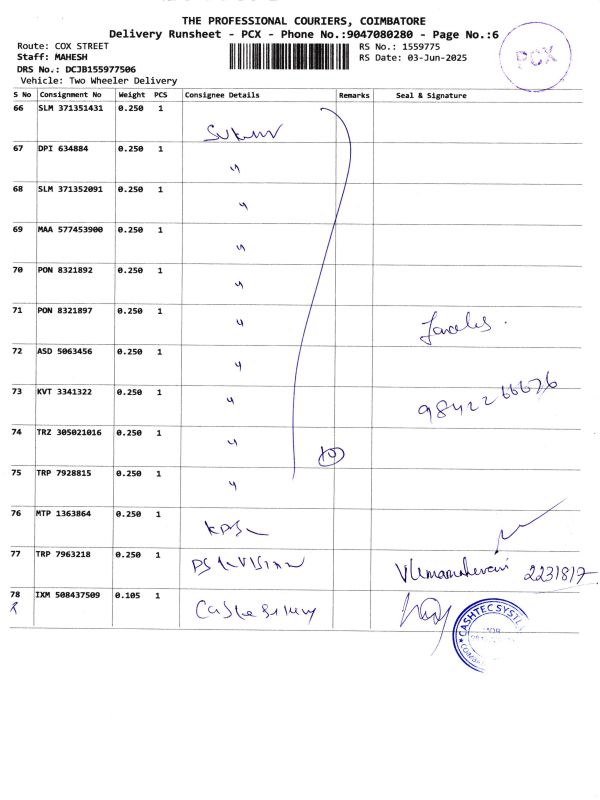 THE PROFESSIONAL COURIERS, COIMBATORE
Delivery Runsheet - PCX - Phone No.:9047080280 - Page No.:6
Route: COX STREET RS No.: 1559775
Staff: MAHESH RS Date: 03-Jun-2025
DRS No.: DCJB155977506
Vehicle: Two Wheeler Delivery
PCX
S No Consignment No Weight PCS Consignee Details Remarks Seal & Signature
66 SLM 371351431 0.250 1
67 DPI 634884 0.250 1 "
68 SLM 371352091 0.250 1 "
69 MAA 577453900 0.250 1 "
70 PON 8321892 0.250 1 "
71 PON 8321897 0.250 1 "
72 ASD 5063456 0.250 1 "
73 KVT 3341322 0.250 1 " 9842266676
74 TRZ 305021016 0.250 1 " 10
75 TRP 7928815 0.250 1 "
76 MTP 1363864 0.250 1
77 TRP 7963218 0.250 1 2231817
78 IXM 508437509 0.105 1
CASHTEC SYSTEM